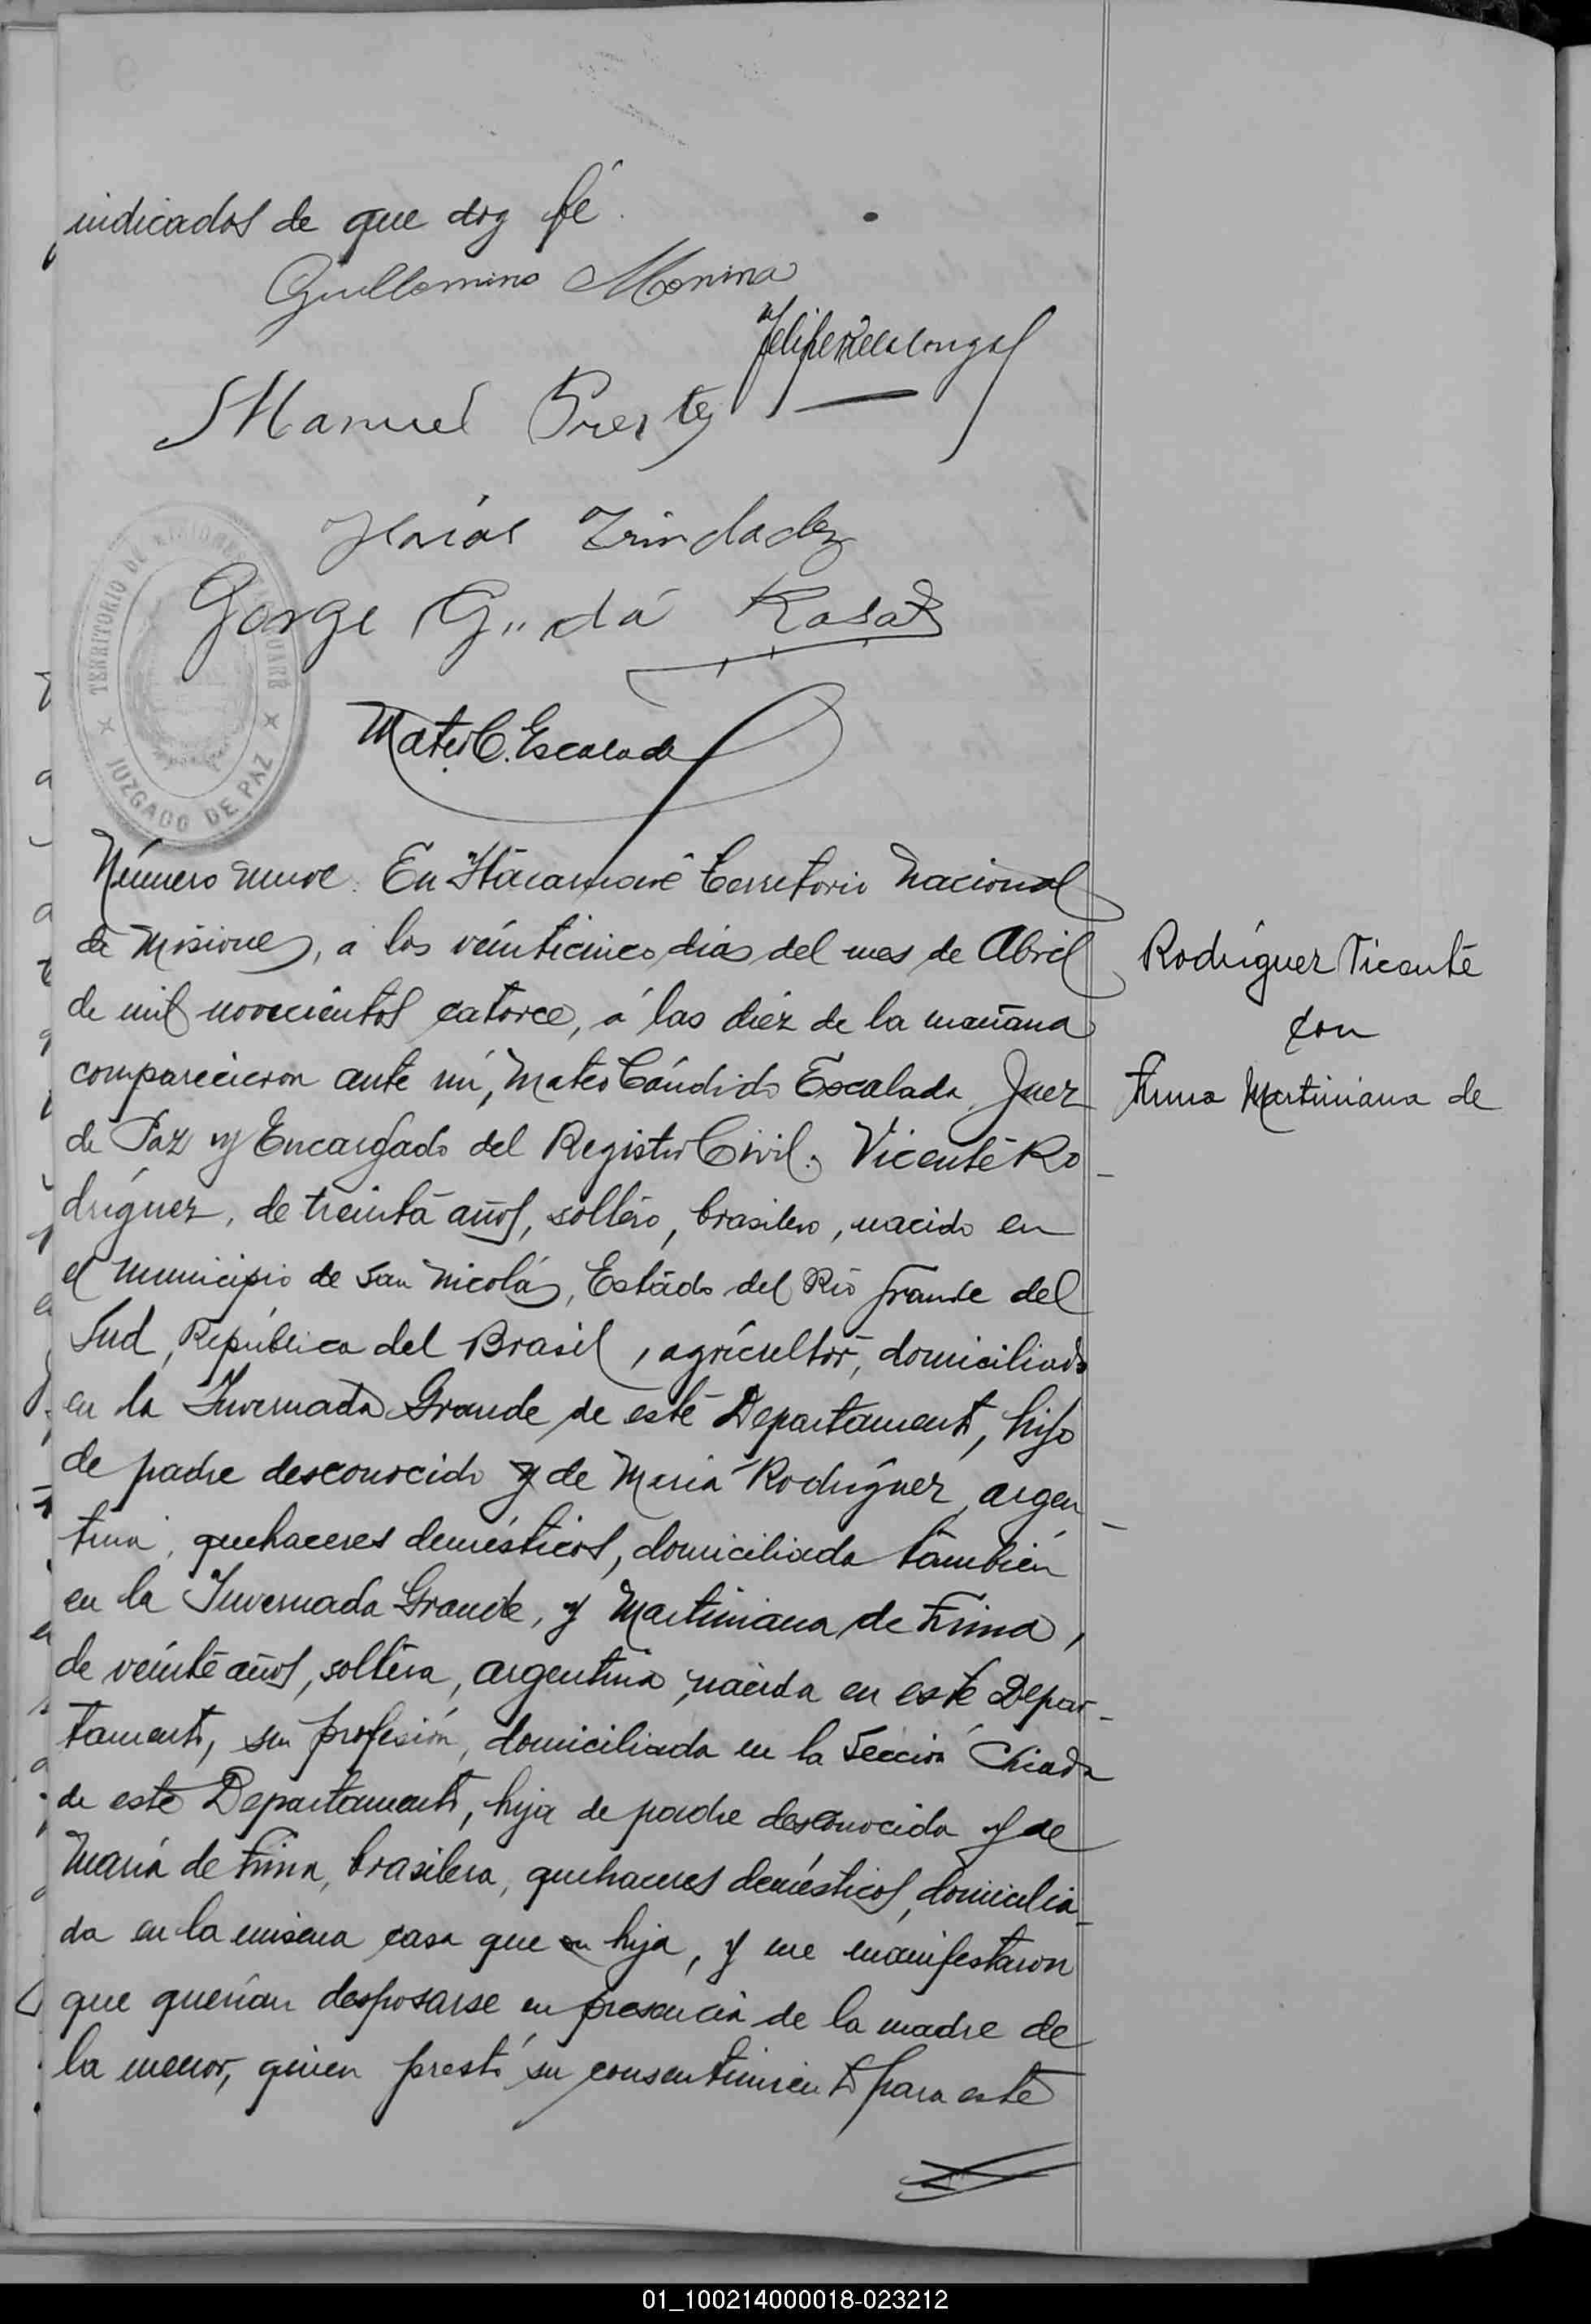 indicados de que doy fé.
Guillermino Monina
Manuel Prestes
Trindade
Jorge G. da Rosa
Mateo C. Escalada
TERRITORIO DE MISIONES
JUZGADO DE PAZ
Número nueve. En Itacaruaré Territorio Nacional
de Misiones, á los veinticinco días del mes de Abril
de mil novecientos catorce, á las diéz de la mañana
comparecieron ante mí, Mateo Cándido Escalada, Juez
de Paz y Encargado del Registro Civil: Vicente Ro-
dríguez, de treinta años, soltero, brasilero, nacido en
el Municipio de San Nicolás, Estado del Río Grande del
Sud, República del Brasil, agricultor, domiciliado
en la Invernada Grande de este Departamento, hijo
de padre desconocido y de María Rodríguez, argen-
tina, quehaceres domésticos, domiciliada también
en la Invernada Grande, y Martiniana de
de veinte años, soltera, argentina, nacida en este Depar-
tamento, sin profesión, domiciliada en la Sección Chiada
de este Departamento, hija de padre desconocido y de
María de brasilera, quehaceres domésticos, domicilia-
da en la misma casa que su hija, y me manifestaron
que querían desposarse en presencia de la madre de
la menor, quien prestó su consentimiento para este
Rodríguez Vicente
con
Martiniana de
01_100214000018-023212